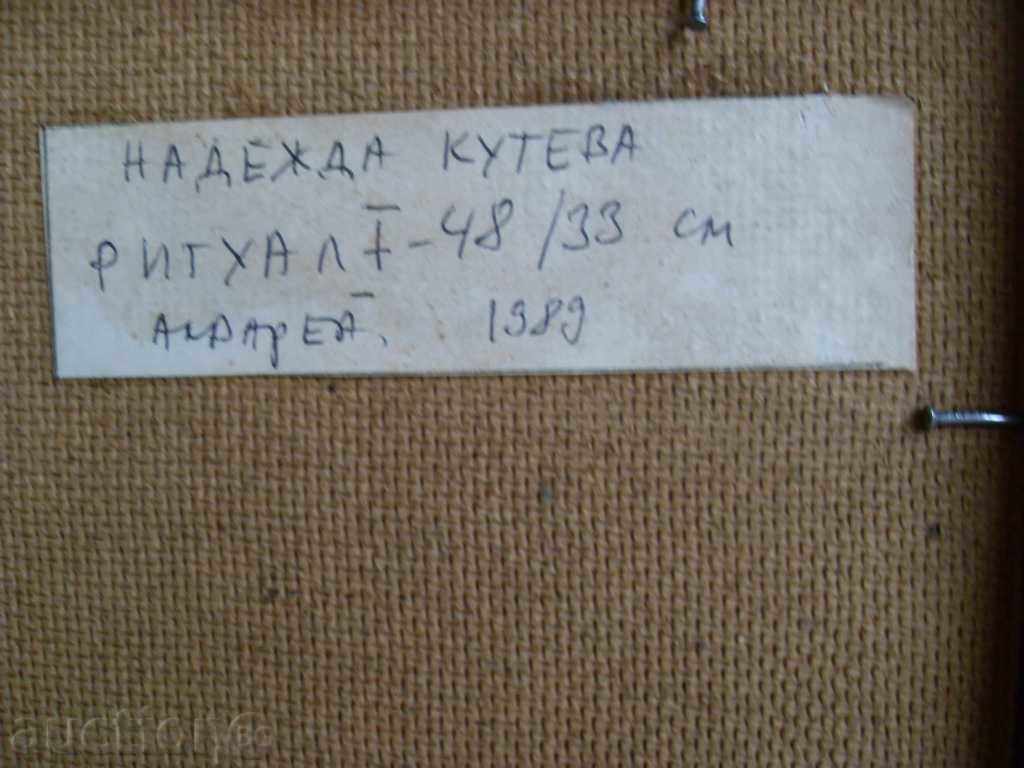 НАДЕЖДА КУТЕВА
РИТУАЛ I - 48/33 см
АКВАРЕЛ. 1989
auction.bg